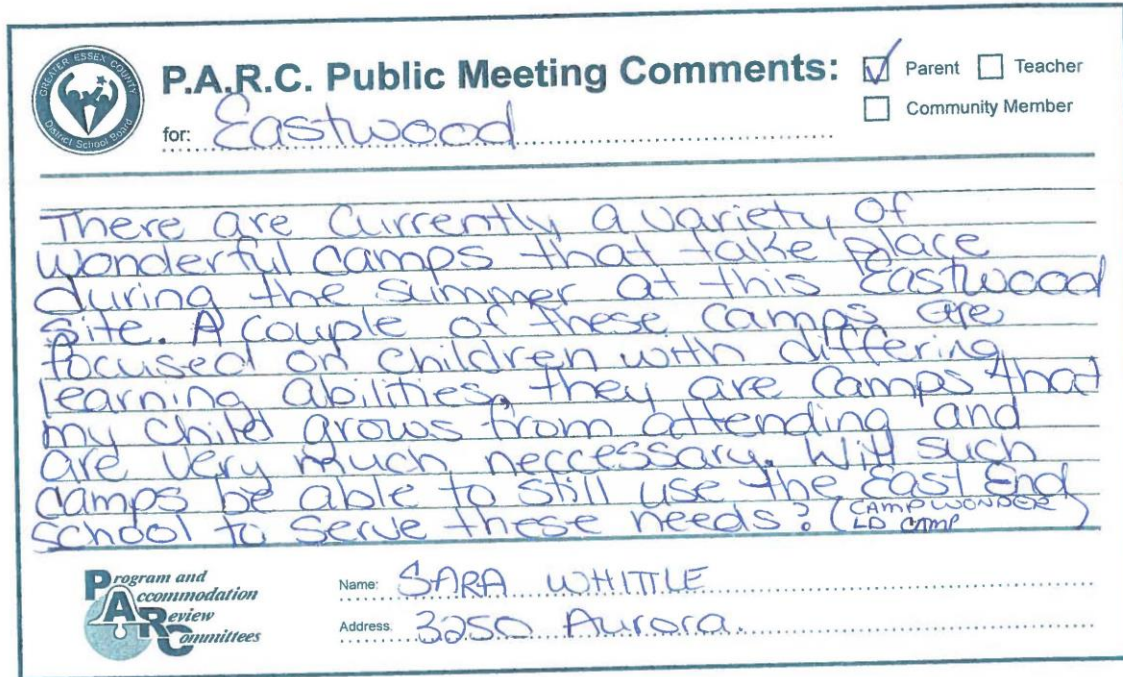 GREATER ESSEX COUNTY
District School Board
P.A.R.C. Public Meeting Comments:
Parent
Teacher
Community Member
for: Eastwood
There are currently a variety of
wonderful camps that take place
during the summer at this Eastwood
site. A couple of these camps are
focused on children with differing
learning abilities, they are camps that
my child grows from attending and
are very much neccessary. Will such
camps be able to still use the East End
school to serve these needs? (CAMP WONDER
LD CAMP)
Program and
Accommodation
Review
Committees
Name: SARA WHITTLE
Address: 3250 Aurora.